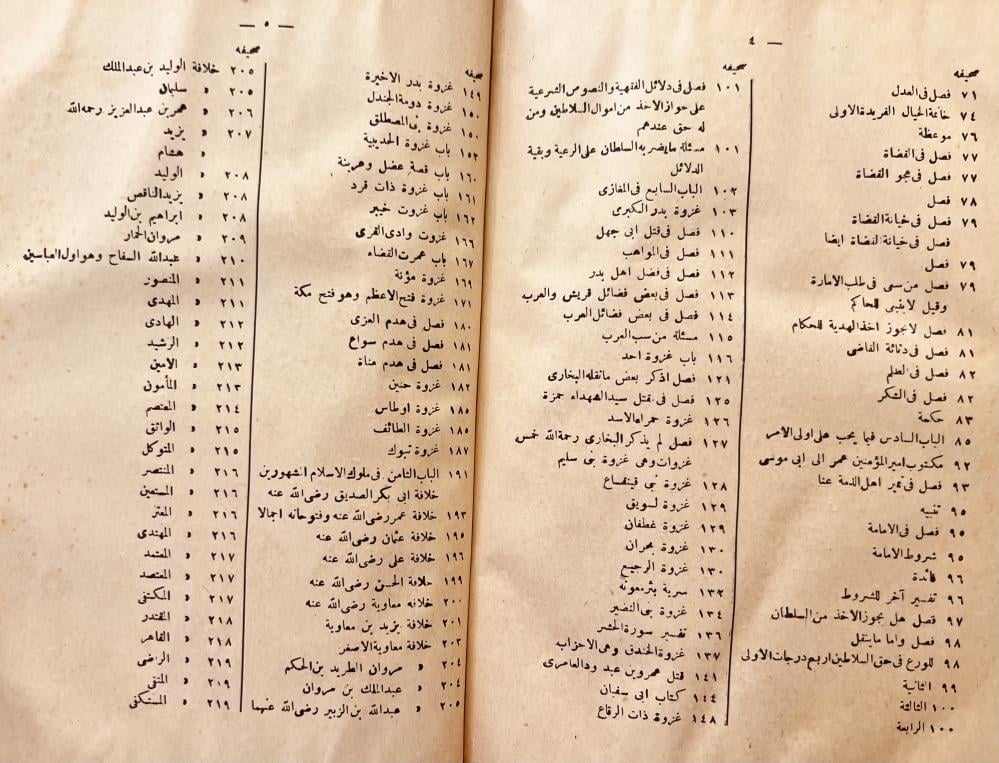 — ٤
صحيفه
٧١ فصل فى العدل
٧٤ خاتمة الخيال الفريدة الاولى
٧٦ موعظة
٧٧ فصل فى القضاة
٧٧ فصل فى هجو القضاة
٧٨ فصل
٧٩ فصل فى خيانة القضاة
فصل فى خيانة القضاة ايضا
٧٩ فصل
٧٩ فصل من سى فى طلب الامارة
وقيل لابغى للحاكم
٨١ فصل لايجوز اخذ الهدية للحكام
٨١ فصل فى دنائة القاضى
٨٢ فصل فى الظلم
٨٢ فصل فى الشكر
٨٣ حكمة
٨٥ الباب السادس فيما يجب على اولى الامر
٩٢ مكتوب امير المؤمنين عمر الى ابى موسى
٩٣ فصل فى تميز اهل الذمة عنا
٩٥ تنبيه
٩٥ فصل فى الامامة
٩٥ شروط الامامة
٩٦ فائدة
٩٦ تفسير آخر للشروط
٩٧ فصل هل يجوز الاخذ من السلطان
٩٨ فصل واما ماينقل
٩٨ للورع فى حق السلاطين اربع درجات الاولى
٩٩ الثانية
١٠٠ الثالثة
١٠٠ الرابعة
صحيفه
١٠١ فصل فى دلائل الفقهية والنصوص الشرعية
على جواز الاخذ من اموال السلاطين ومن
له حق عندهم
١٠١ مسئلة مايضر به السلطان على الرعية وبقية
الدلائل
١٠٢ الباب السابع فى المغازى
١٠٣ غزوة بدر الكبرى
١١٠ فصل فى قتل ابى جهل
١١١ فصل فى المواهب
١١٢ فصل فى فضل اهل بدر
١١٣ فصل فى بعض فضائل قريش والعرب
١١٤ فصل فى بعض فضائل العرب
١١٥ مسئلة من سب العرب
١١٦ باب غزوة احد
١٢١ فصل اذكر بعض مانقله البخارى
١٢٥ فصل فى مقتل سيد الشهداء حمزة
١٢٦ غزوة حمراء الاسد
١٢٧ فصل لم يذكر البخارى رحمة الله خمس
غزوات وهى غزوة بنى سليم
١٢٨ غزوة نبى قينقاع
١٢٩ غزوة لسويق
١٢٩ غزوة غطفان
١٣٠ غزوة بحران
١٣٠ غزوة الرجيع
١٣٢ سرية بئر معونة
١٣٤ غزوة بنى النضير
١٣٦ تفسير سورة الحشر
١٣٧ غزوة الخندق وهى الاحزاب
١٤١ قتل عمرو بن عبد ود العامرى
١٤٤ كتاب ابى سفيان
١٤٨ غزوة ذات الرقاع
— ٥ —
صحيفه
١٤٩ غزوة بدر الاخيرة
١٥٠ غزوة دومة الجندل
١٥٠ غزوة بنى المصطلق
١٥٢ باب غزوة الحديبية
١٦٠ باب قصة عضل وعرينة
١٦١ باب غزوة ذات قرد
١٦٢ باب غزوت خيبر
١٦٦ غزوت وادى القرى
١٦٧ باب عمرت القضاء
١٦٩ غزوة مؤنة
١٧١ غزوة فتح الاعظم وهو فتح مكة
١٨٠ فصل فى هدم العزى
١٨١ فصل فى هدم سواع
١٨١ فصل فى هدم مناة
١٨٢ غزوة حنين
١٨٥ غزوة اوطاس
١٨٥ غزوة الطائف
١٨٧ غزوة تبوك
١٩١ الباب الثامن فى ملوك الاسلام المشهورين
خلافة ابى بكر الصديق رضى الله عنه
١٩٣ خلافة عمر رضى الله عنه وفتوحاته اجمالا
١٩٥ خلافة عثمان رضى الله عنه
١٩٦ خلافة على رضى الله عنه
١٩٩ خلافة الحسن رضى الله عنه
٢٠٠ خلافه معاوية رضى الله عنه
٢٠١ خلافة يزيد بن معاوية
٢٠٣ خلافة معاوية الاصفر
٢٠٤ » مروان الطريد بن الحكم
٢٠٤ » عبد الملك بن مروان
٢٠٥ » عبدالله بن الزبير رضى الله عنهما
صحيفه
٢٠٥ خلافة الوليد بن عبدالملك
٢٠٥ » سليمان
٢٠٦ » عمر بن عبد العزيز رحمه الله
٢٠٧ » يزيد
» هشام
٢٠٨ » الوليد
٢٠٨ » يزيد الناقص
٢٠٨ » ابراهيم بن الوليد
٢٠٩ » مروان الحمار
٢١٠ » عبدالله السفاح وهو اول العباسين
٢١١ » المنصور
٢١١ » المهدى
٢١٢ » الهادى
٢١٢ » الرشيد
٢١٣ » الامين
٢١٣ » المأمون
٢١٤ » المعتصم
٢١٥ » الواثق
٢١٥ » المتوكل
٢١٦ » المنتصر
٢١٦ » المستعين
٢١٦ » المعتز
٢١٦ » المهتدى
٢١٧ » المعتمد
٢١٧ » المعتضد
٢١٧ » المكتفى
٢١٨ » المقتدر
٢١٨ » القاهر
٢١٩ » الراضى
٢١٩ » المتقى
٢١٩ » المستكفى